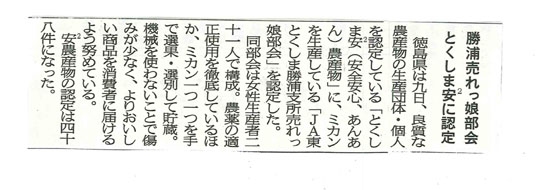 勝浦売れっ娘部会
とくしま安²に認定
徳島県は九日、良質な
農産物の生産団体・個人
を認定している「とくし
ま安²(安全安心、あんあ
ん)農産物」に、ミカン
を生産している「JA東
とくしま勝浦支所売れっ
娘部会」を認定した。
同部会は女性生産者二
十一人で構成。農薬の適
正使用を徹底しているほ
か、ミカン一つ一つを手
で選果・選別して貯蔵。
機械を使わないことで傷
みが少なく、よりおいし
い商品を消費者に届ける
よう努めている。
安²農産物の認定は四十
八件になった。